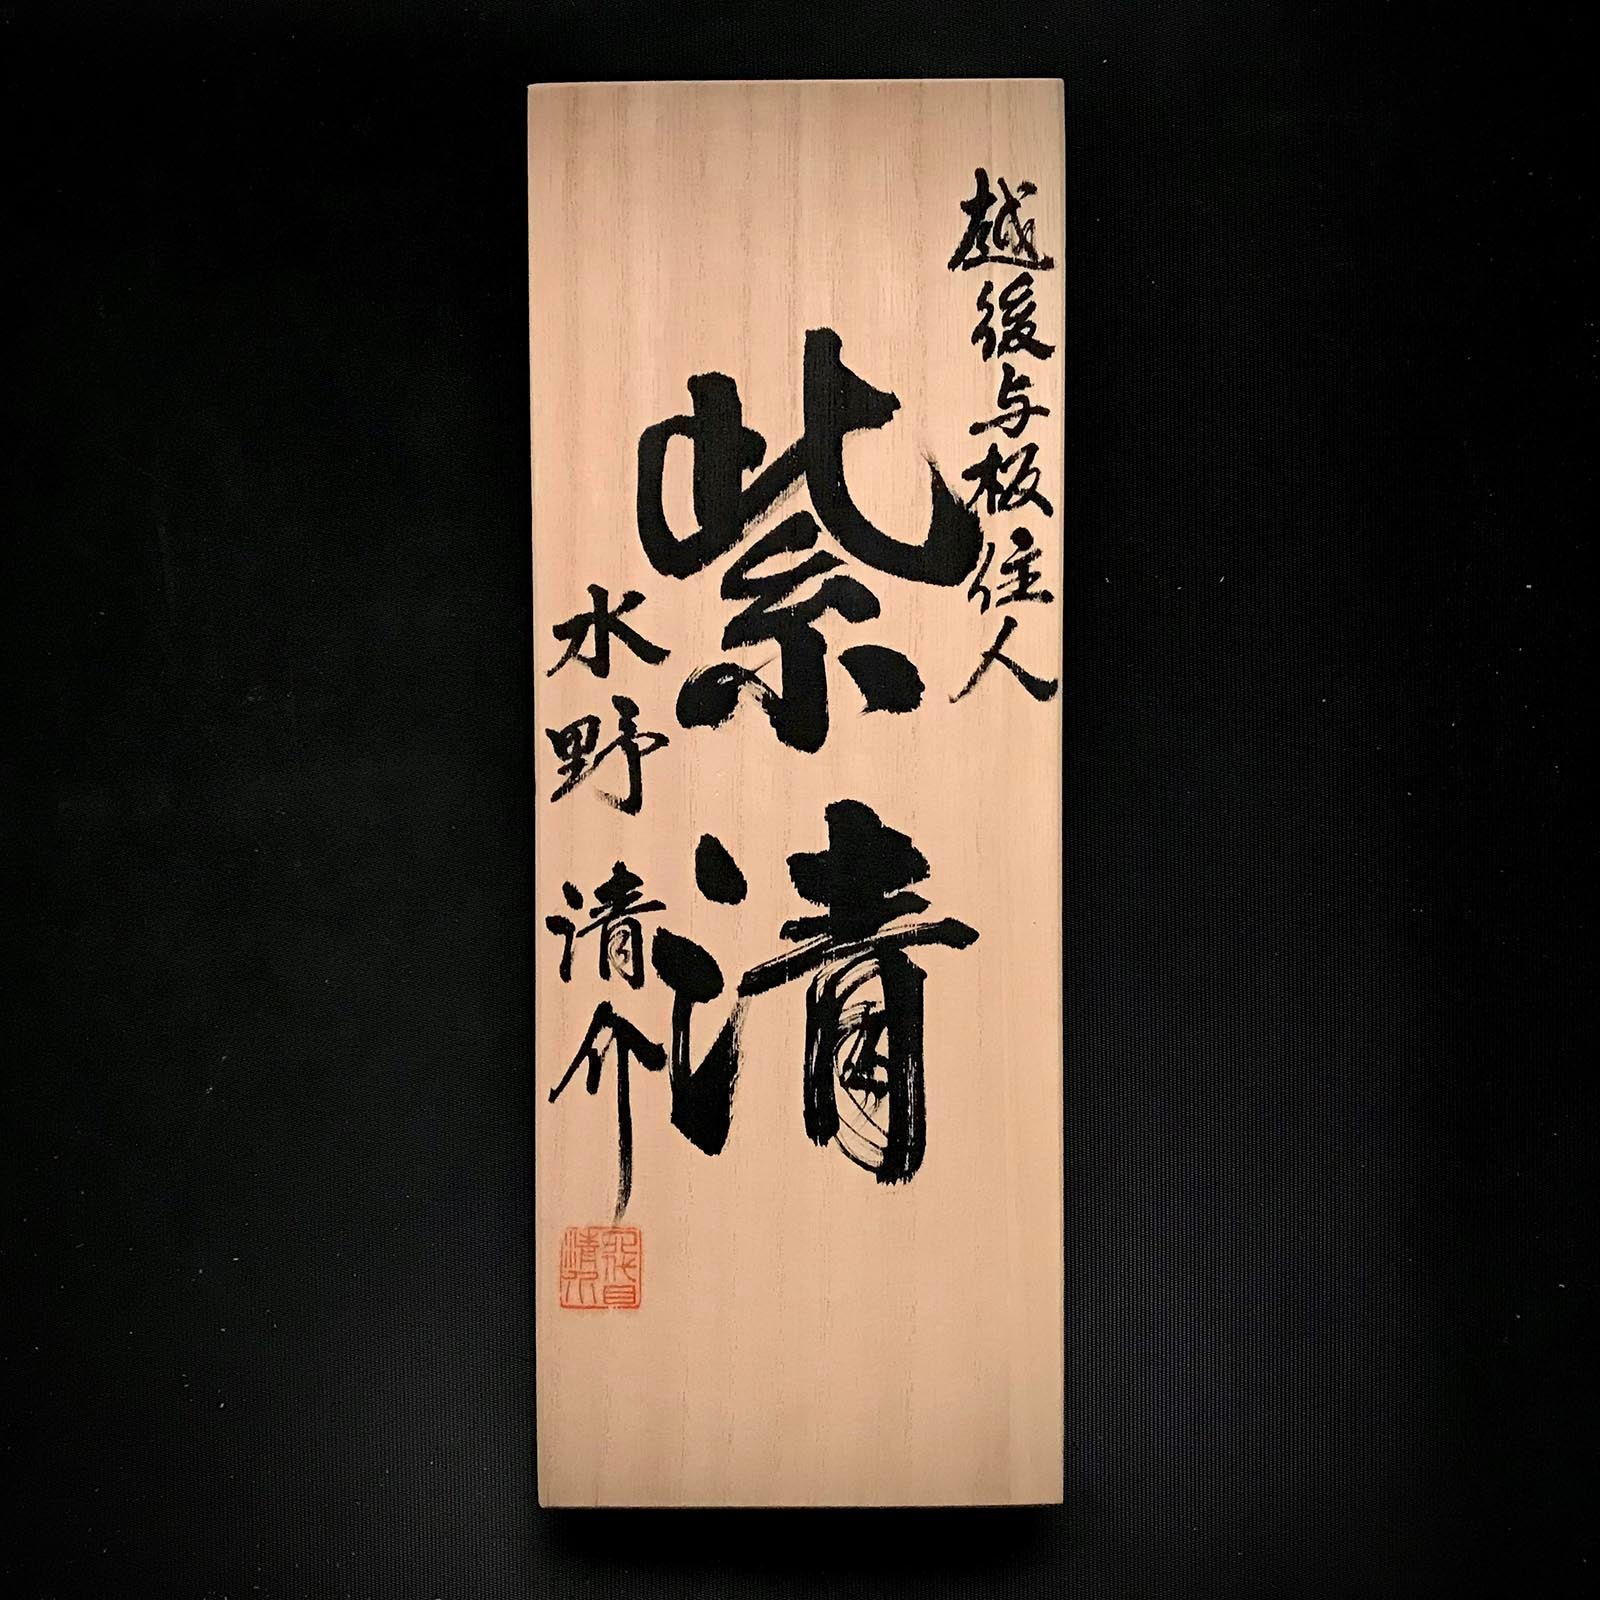 越後与板住人
紫清
水野清介